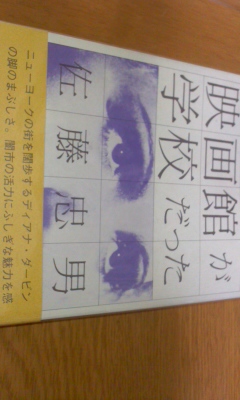 映画館が
学校だった
佐藤忠男
ニューヨークの街を闊歩するディアナ・ダービン
の脚のまぶしさ。闇市の活力にふしぎな魅力を感